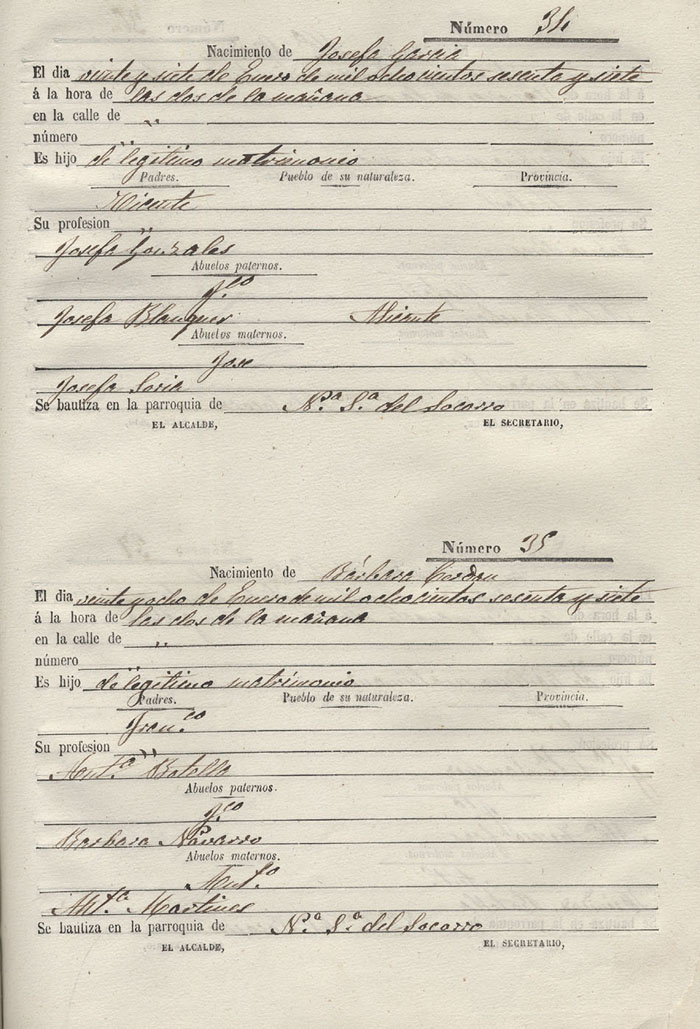 Número 34
Nacimiento de Josefa Garcia
El dia veinte y siete de Enero de mil ochocientos sesenta y siete
á la hora de las dos de la mañana
en la calle de „
número „
Es hijo de legitimo matrimonio
Padres. Pueblo de su naturaleza. Provincia.
Vicente
Su profesion „
Josefa Gonzales
Abuelos paternos.
Fco
Josefa Blanquer Alicante
Abuelos maternos.
Jose
Josefa Soria
Se bautiza en la parroquia de N.ª S.ª del Socorro
EL ALCALDE, EL SECRETARIO,
Número 35
Nacimiento de Bárbara
El dia veinte y ocho de Enero de mil ochocientos sesenta y siete
á la hora de las dos de la mañana
en la calle de „
número „
Es hijo de legitimo matrimonio
Padres. Pueblo de su naturaleza. Provincia.
Fran.co
Su profesion „
Ant.ª Botella
Abuelos paternos.
Fco
Barbara Navarro
Abuelos maternos.
Ant.º
Martines
Se bautiza en la parroquia de N.ª S.ª del Socorro
EL ALCALDE, EL SECRETARIO,